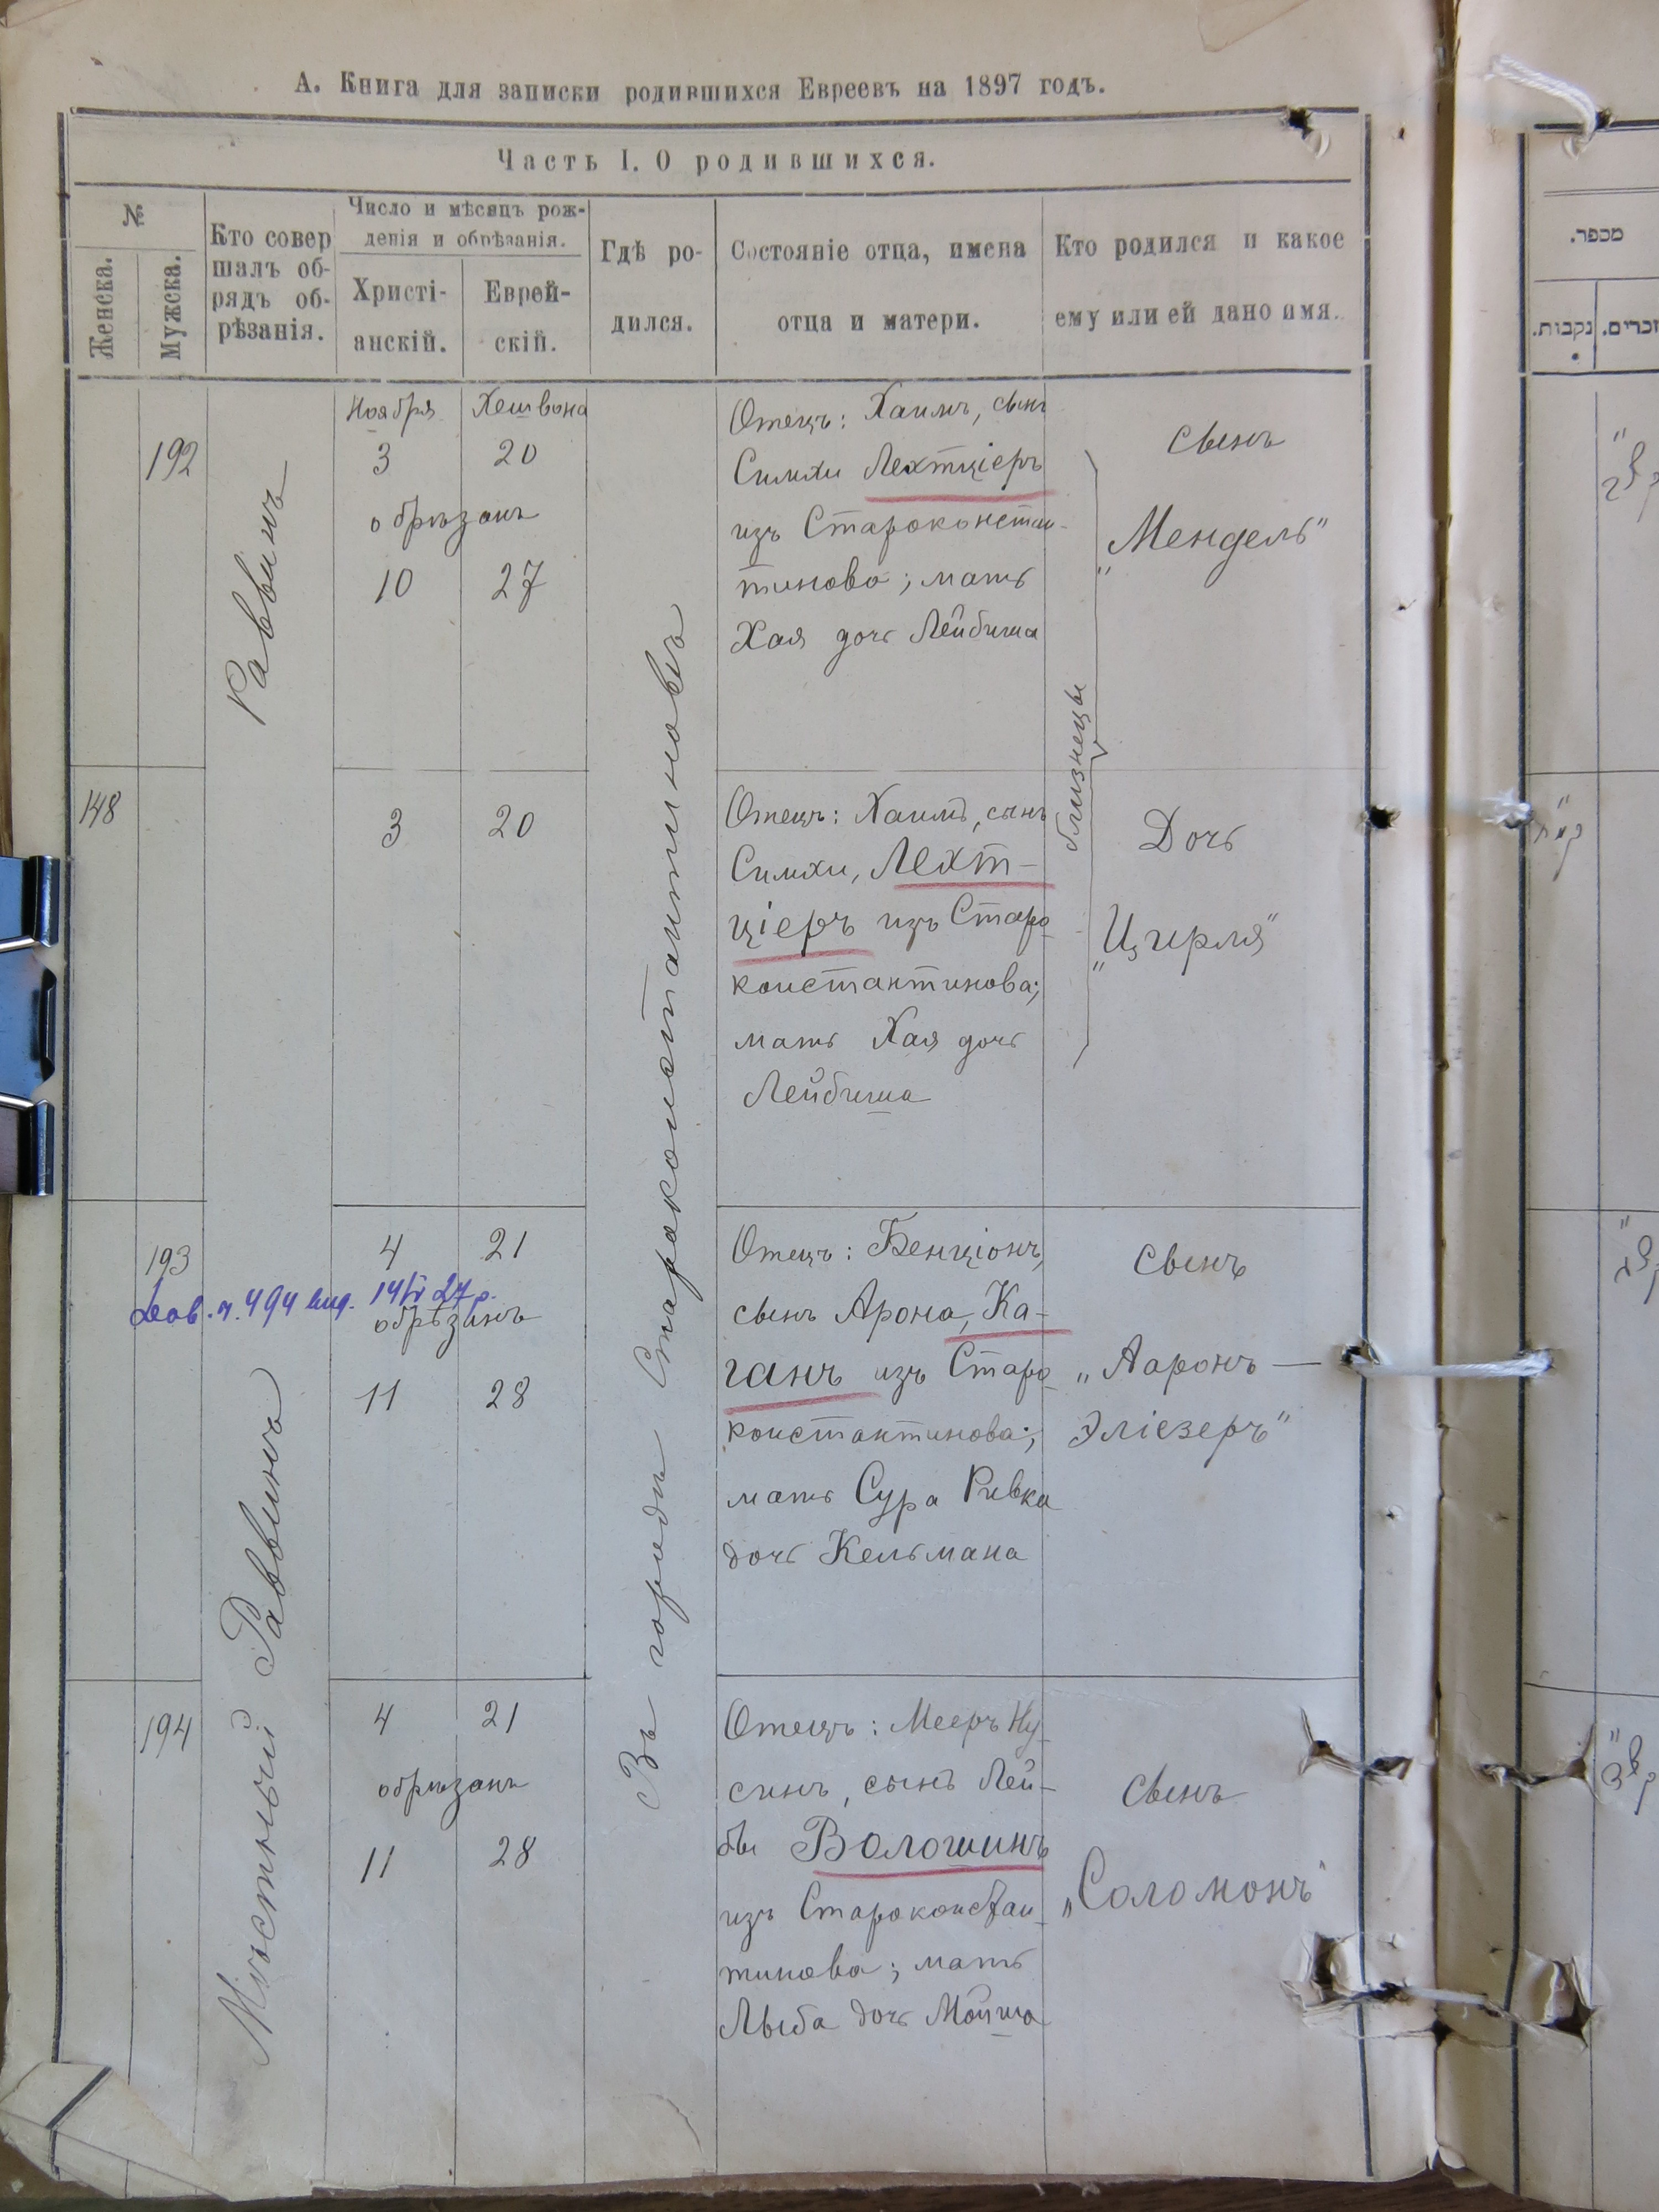 А. Книга для записки родившихся Евреевъ на 1897 годъ.
Часть I. О родившихся.
№
Женска.
Мужска.
Кто совер
шалъ об-
рядъ об-
рѣзанія.
Число и мѣсяцъ рож-
денія и обрѣзанія.
Христі-
анскій.
Еврей-
скій.
Гдѣ ро-
дился.
Состояніе отца, имена
отца и матери.
Кто родился и какое
ему или ей дано имя.
Мѣстный Раввинъ
Раввинъ
Въ городѣ Староконстантиновѣ
192
Ноября
Хешвона
3 20
обрѣзанъ
10 27
Отецъ: Хаимъ, сынъ
Симхи Лехтціеръ
изъ Староконстан-
тинова; мать
Хая дочь Лейбиша
сынъ
"Мендель"
близнецы
148
3 20
Отецъ: Хаимъ, сынъ
Симхи, Лехт-
ціеръ изъ Старо-
константинова;
мать Хая дочь
Лейбиша
Дочь
"Цирля"
193
4 21
Дов. ч. 494 вид. 14/IV 27 р.
обрѣзанъ
11 28
Отецъ: Бенціонъ,
сынъ Арона, Ка-
ганъ изъ Старо-
константинова;
мать Сура Ривка
дочь Кельмана
сынъ
„Ааронъ —
Эліезеръ"
194
4 21
обрѣзанъ
11 28
Отецъ: Мееръ Ну-
синъ, сынъ Лей-
бы Волошинъ
изъ Староконстан-
тинова; мать
Лыба дочь Мойша
сынъ
„Соломонъ"
מספר.
נקבות.
זכרים.